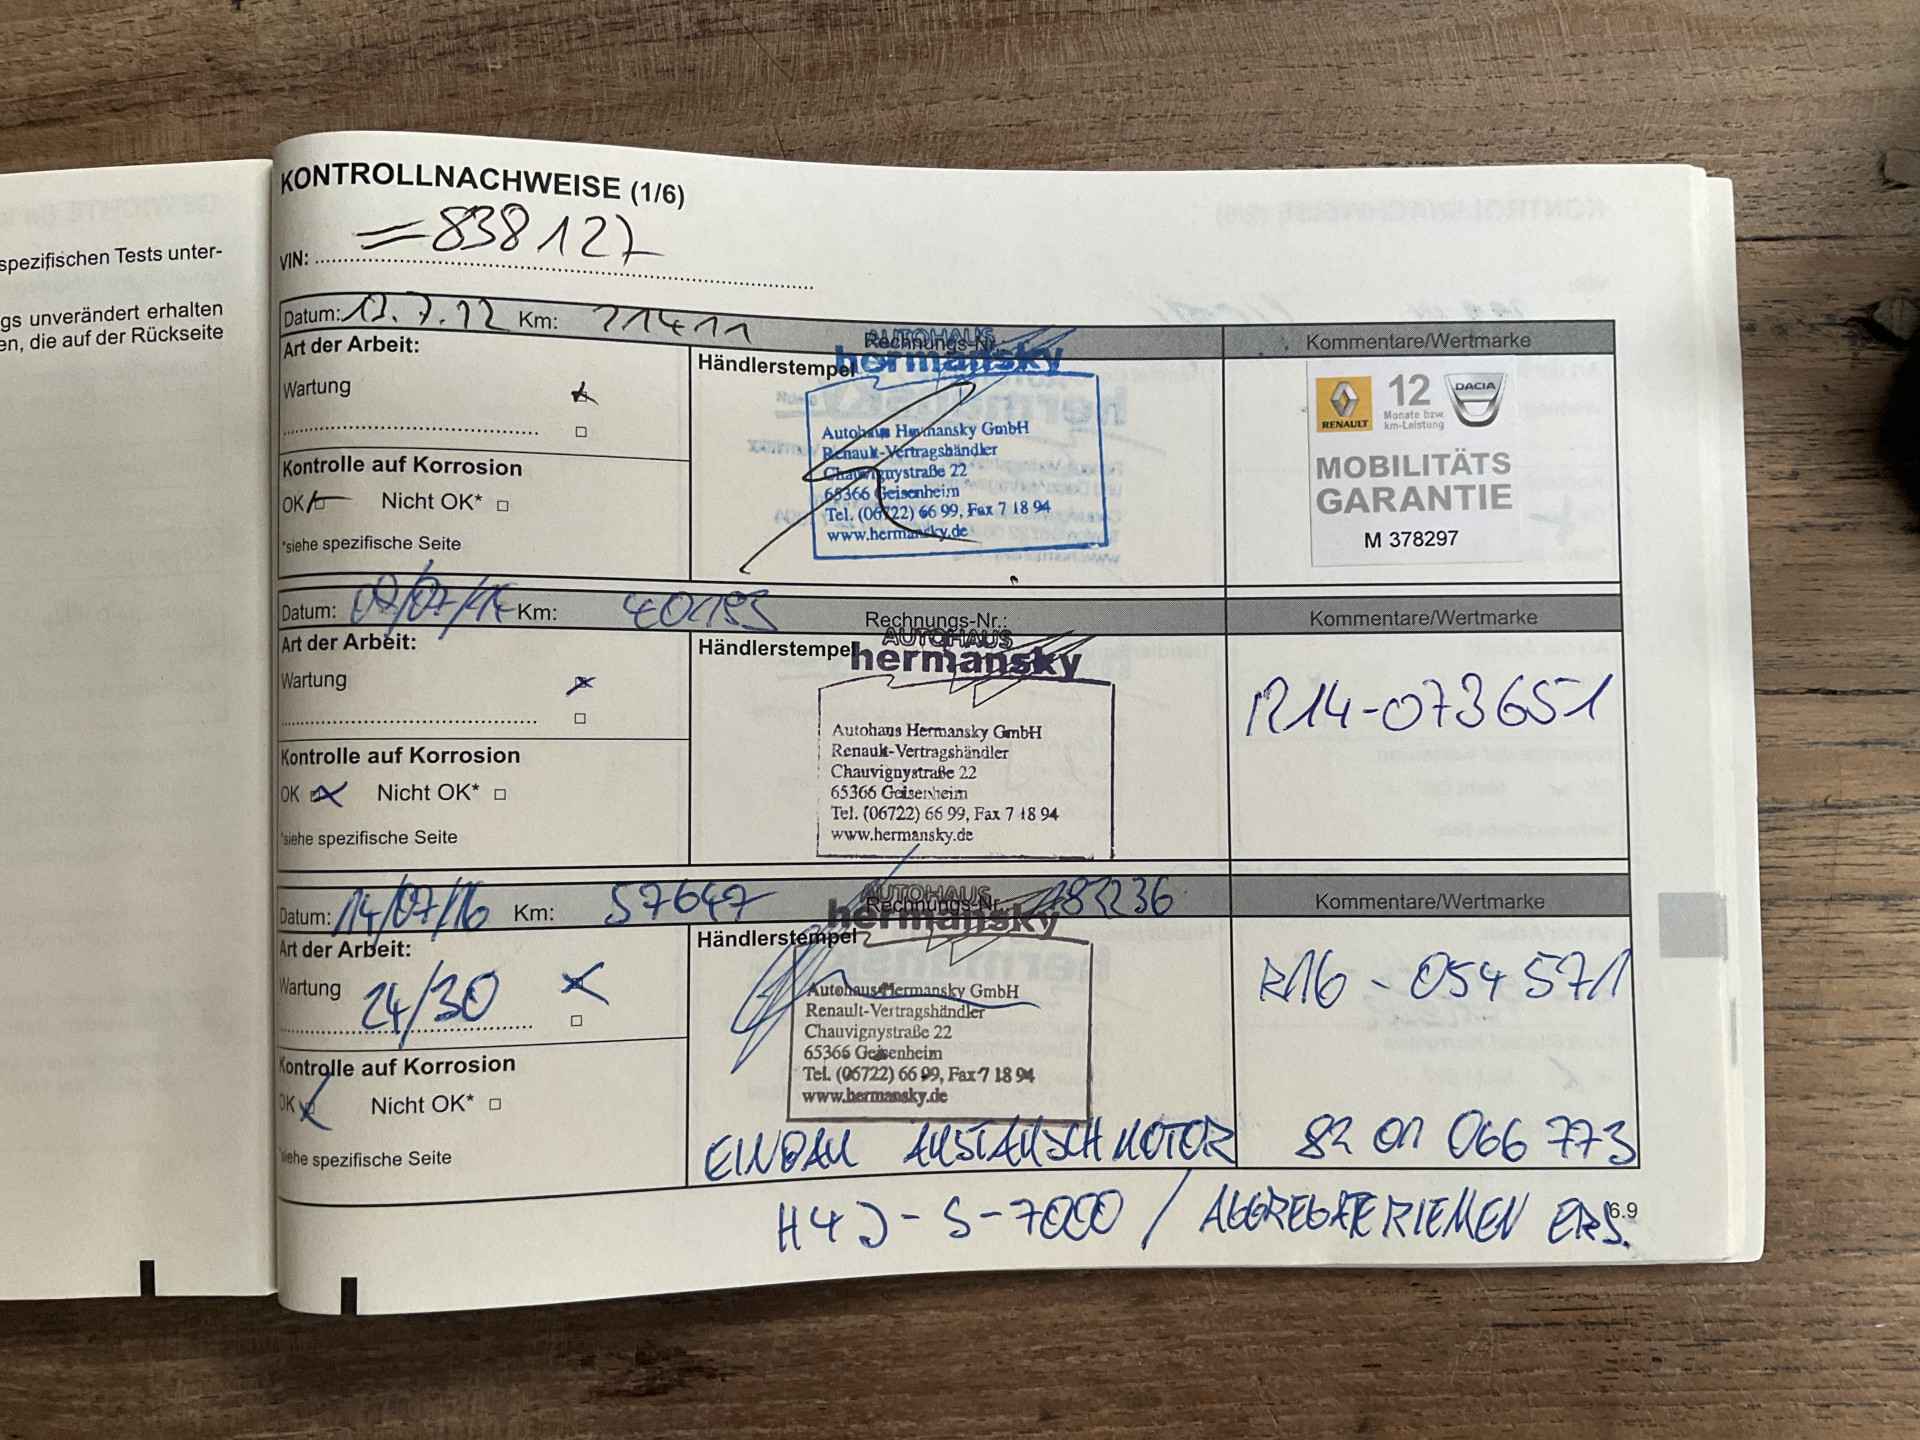 KONTROLLNACHWEISE (1/6)
VIN: =838127
spezifischen Tests unter-
gs unverändert erhalten
en, die auf der Rückseite
Datum: 12.7.12 Km: 21411 Rechnungs-Nr. Kommentare/Wertmarke
Art der Arbeit:
Wartung
Kontrolle auf Korrosion
OK Nicht OK*
*siehe spezifische Seite
Händlerstempel
AUTOHAUS
hermansky
Autohaus Hermansky GmbH
Renault-Vertragshändler
Chauvignystraße 22
65366 Geisenheim
Tel. (06722) 66 99, Fax 7 18 94
www.hermansky.de
RENAULT
12
Monate bzw.
km-Leistung
DACIA
MOBILITÄTS
GARANTIE
M 378297
Datum: Km: 40193 Rechnungs-Nr.: Kommentare/Wertmarke
Art der Arbeit:
Wartung
Kontrolle auf Korrosion
OK Nicht OK*
*siehe spezifische Seite
Händlerstempel
AUTOHAUS
hermansky
Autohaus Hermansky GmbH
Renault-Vertragshändler
Chauvignystraße 22
65366 Geisenheim
Tel. (06722) 66 99, Fax 7 18 94
www.hermansky.de
R14-073651
Datum: 14/07/16 Km: 57647 Rechnungs-Nr. 182236 Kommentare/Wertmarke
Art der Arbeit:
Wartung 24/30
Kontrolle auf Korrosion
OK Nicht OK*
*siehe spezifische Seite
Händlerstempel
AUTOHAUS
hermansky
Autohaus Hermansky GmbH
Renault-Vertragshändler
Chauvignystraße 22
65366 Geisenheim
Tel. (06722) 66 99, Fax 7 18 94
www.hermansky.de
R16 - 054571
EINBAU AUSTAUSCHMOTOR 82 01 066 773
H4J-S-7000 / AGGREGATERIEMEN ERS.
6.9